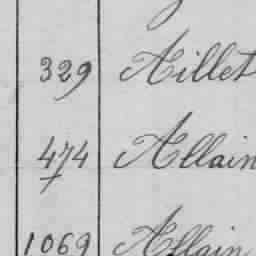 329 Aillet
474 Allain
1069 Allain